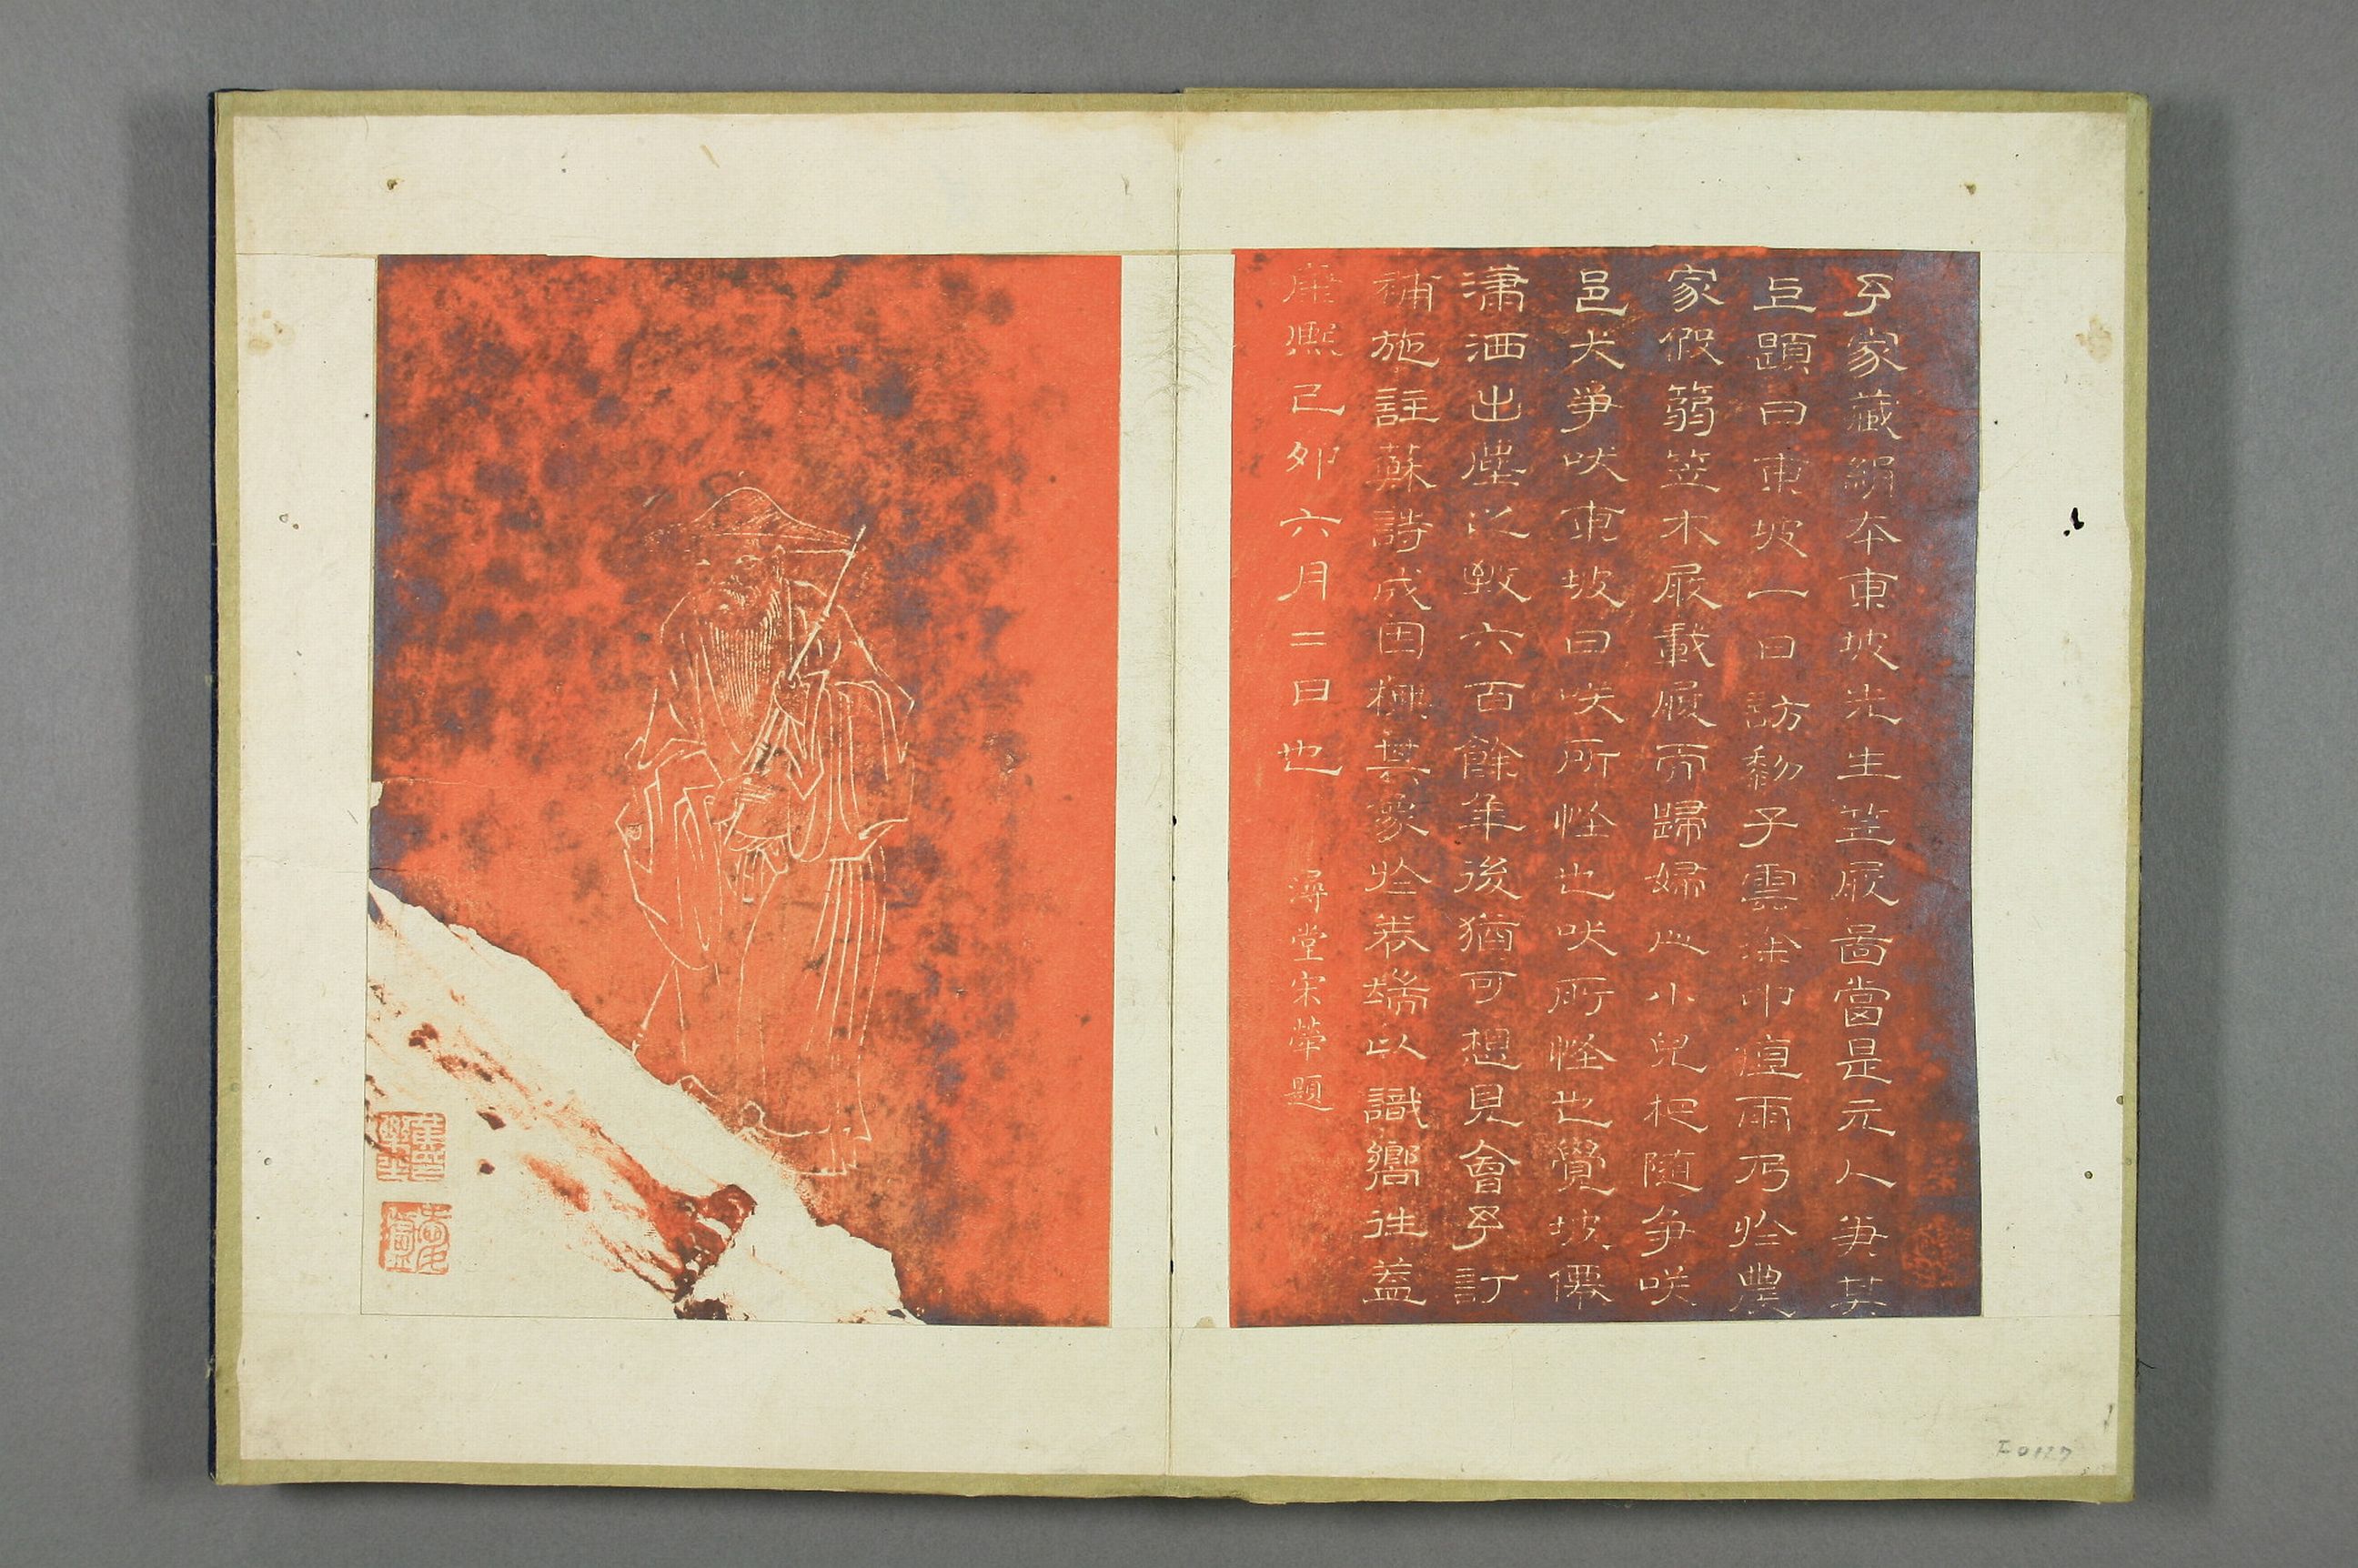 予家藏絹本東坡先生笠屐圖當是元人筆其
上題曰東坡一日訪黎子雲途中值雨乃於農
家假篛笠木屐載履而歸婦人小兒相隨争咲
邑犬爭吠東坡曰咲所怪也吠所怪也覺坡僊
瀟洒出塵之致六百餘年後猶可想見會予訂
補施註蘇詩成因橅其象於卷端以識嚮往蓋
康熙己卯六月二日也 漫堂宋犖題
E0127